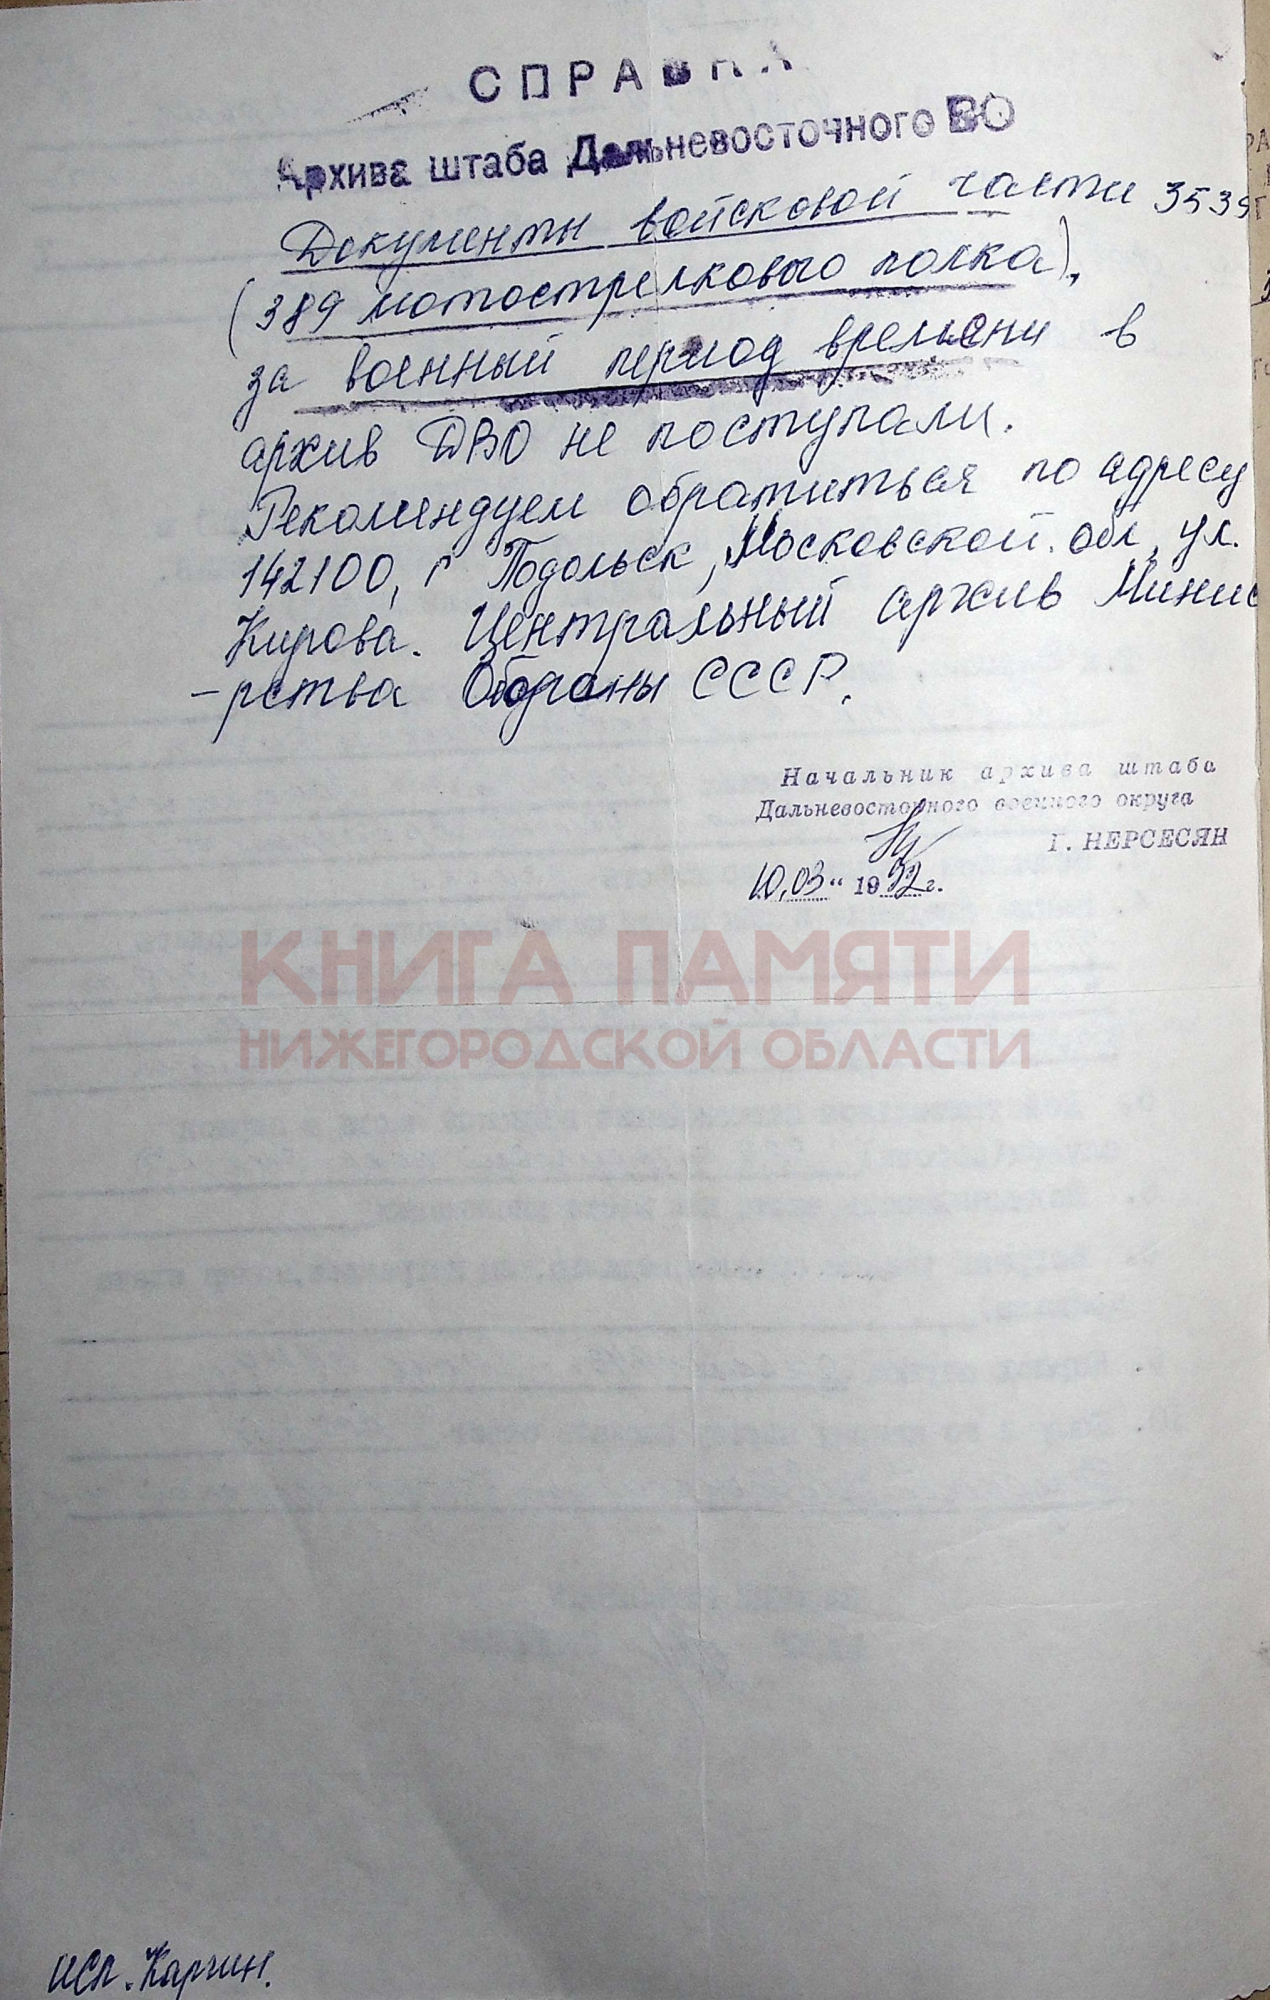 СПРАВКА
Архива штаба Дальневосточного ВО
Документы войсковой части 3539
(389 мотострелкового полка).
за военный период времени в
архив ДВО не поступали.
Рекомендуем обратиться по адресу
142100, г Подольск, Московской. обл, ул.
Кирова. Центральный архив Минис
-рства Обороны СССР.
Начальник архива штаба
Дальневосточного военного округа
Г. НЕРСЕСЯН
10.03 " 1992 г.
КНИГА ПАМЯТИ
НИЖЕГОРОДСКОЙ ОБЛАСТИ
исп. Каргин.